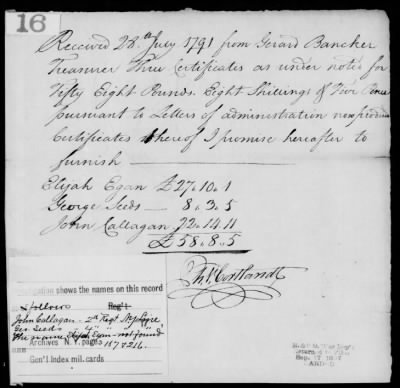 16
Received 28th July 1791 from Gerard Bancker
Treasurer Three Certificates as under noted for
Fifty Eight Pounds. Eight Shillings & Five Pence
pursuant to Letters of administration now produced
Certificates whereof I promise hereafter to
furnish
Elijah Egan £27.10.1
George Seeds 8.3.5
John Callagan 22.14.11
£58.8.5
Ph V. Cortlandt
shows the names on this record
follows Reg't
John Callagan - 2d Regt
Geo. Seeds
The name Elijah Egan "not found"
Archives N.Y. pages 157 & 216.
Gen'l Index mil. cards